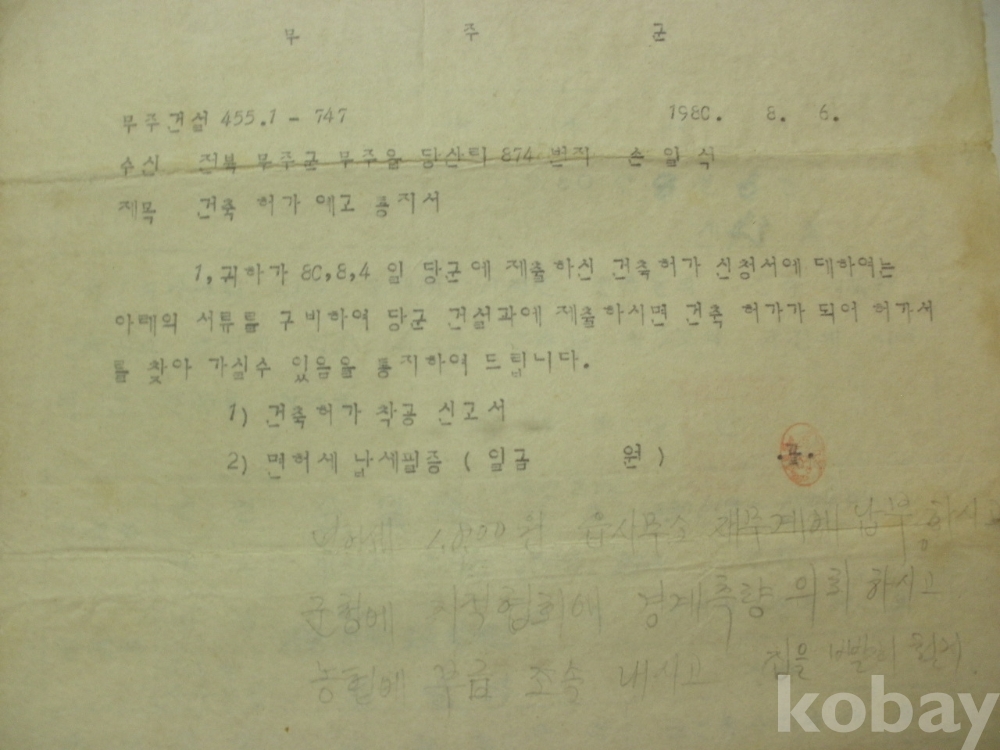 무 주 군
무주건설 455.1 - 747 1980. 8. 6.
수신 전북 무주군 무주읍 당산리 874 번지 손 일 식
제목 건축 허가 예고 통지서
1, 귀하가 80,8,4 일 당군에 제출하신 건축허가 신청서에 대하여는
아래의 서류를 구비하여 당군 건설과에 제출하시면 건축 허가가 되어 허가서
를 찾아 가실수 있음을 통지하여 드립니다.
1) 건축허가 착공 신고서
2) 면허세 납세필증 ( 일금 원 ) .끝.
원 읍사무소 재무계에 납부 하시고
군청에 지적협회에 경계측량 의뢰 하시고
농협에 내시고 집을
kobay